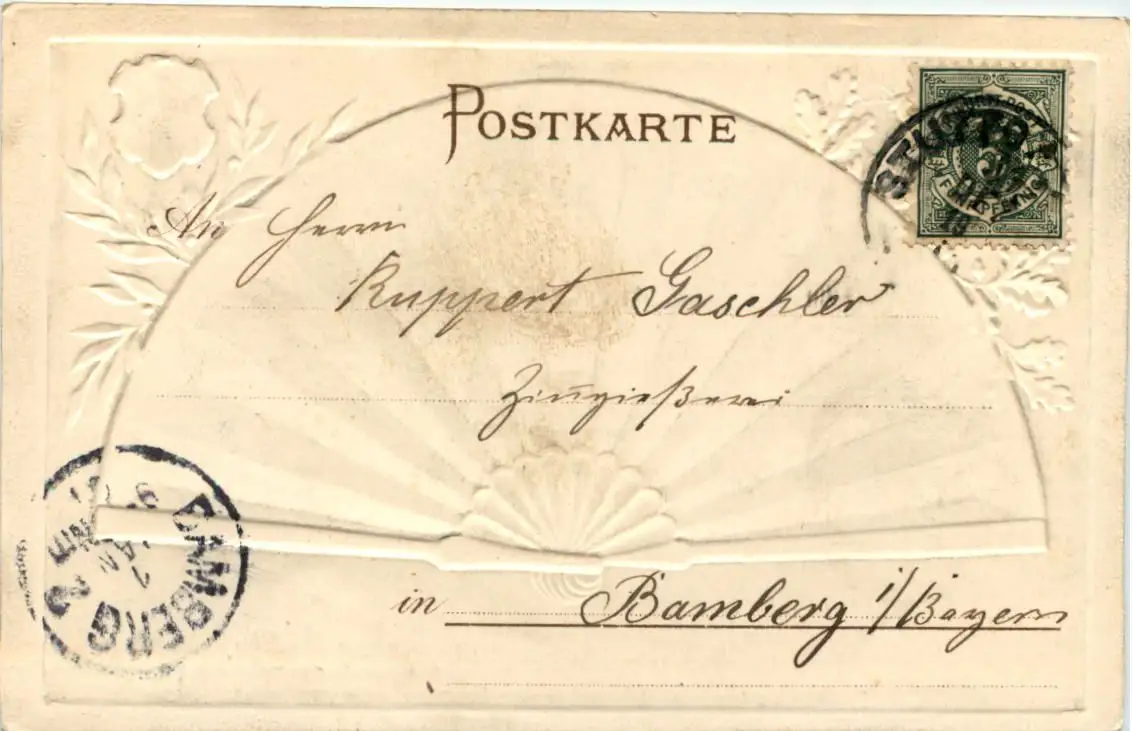 POSTKARTE
An Herrn
Ruppert Gaschler
Zinngießerei
in Bamberg i/Bayern
STUTTG
5
FÜNF PFENNIG
BAMBERG 2
1
JAN